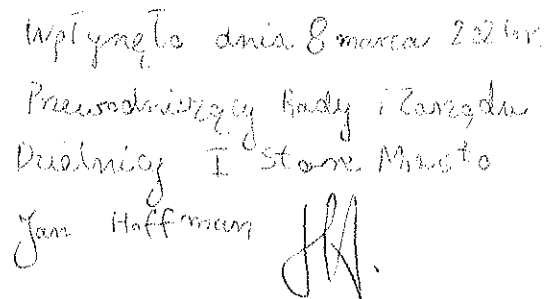 Wpłynęło dnia 8 marca 2021r.
Przewodniczący Rady i Zarządu
Dzielnicy I Stare Miasto
Jan Hoffman